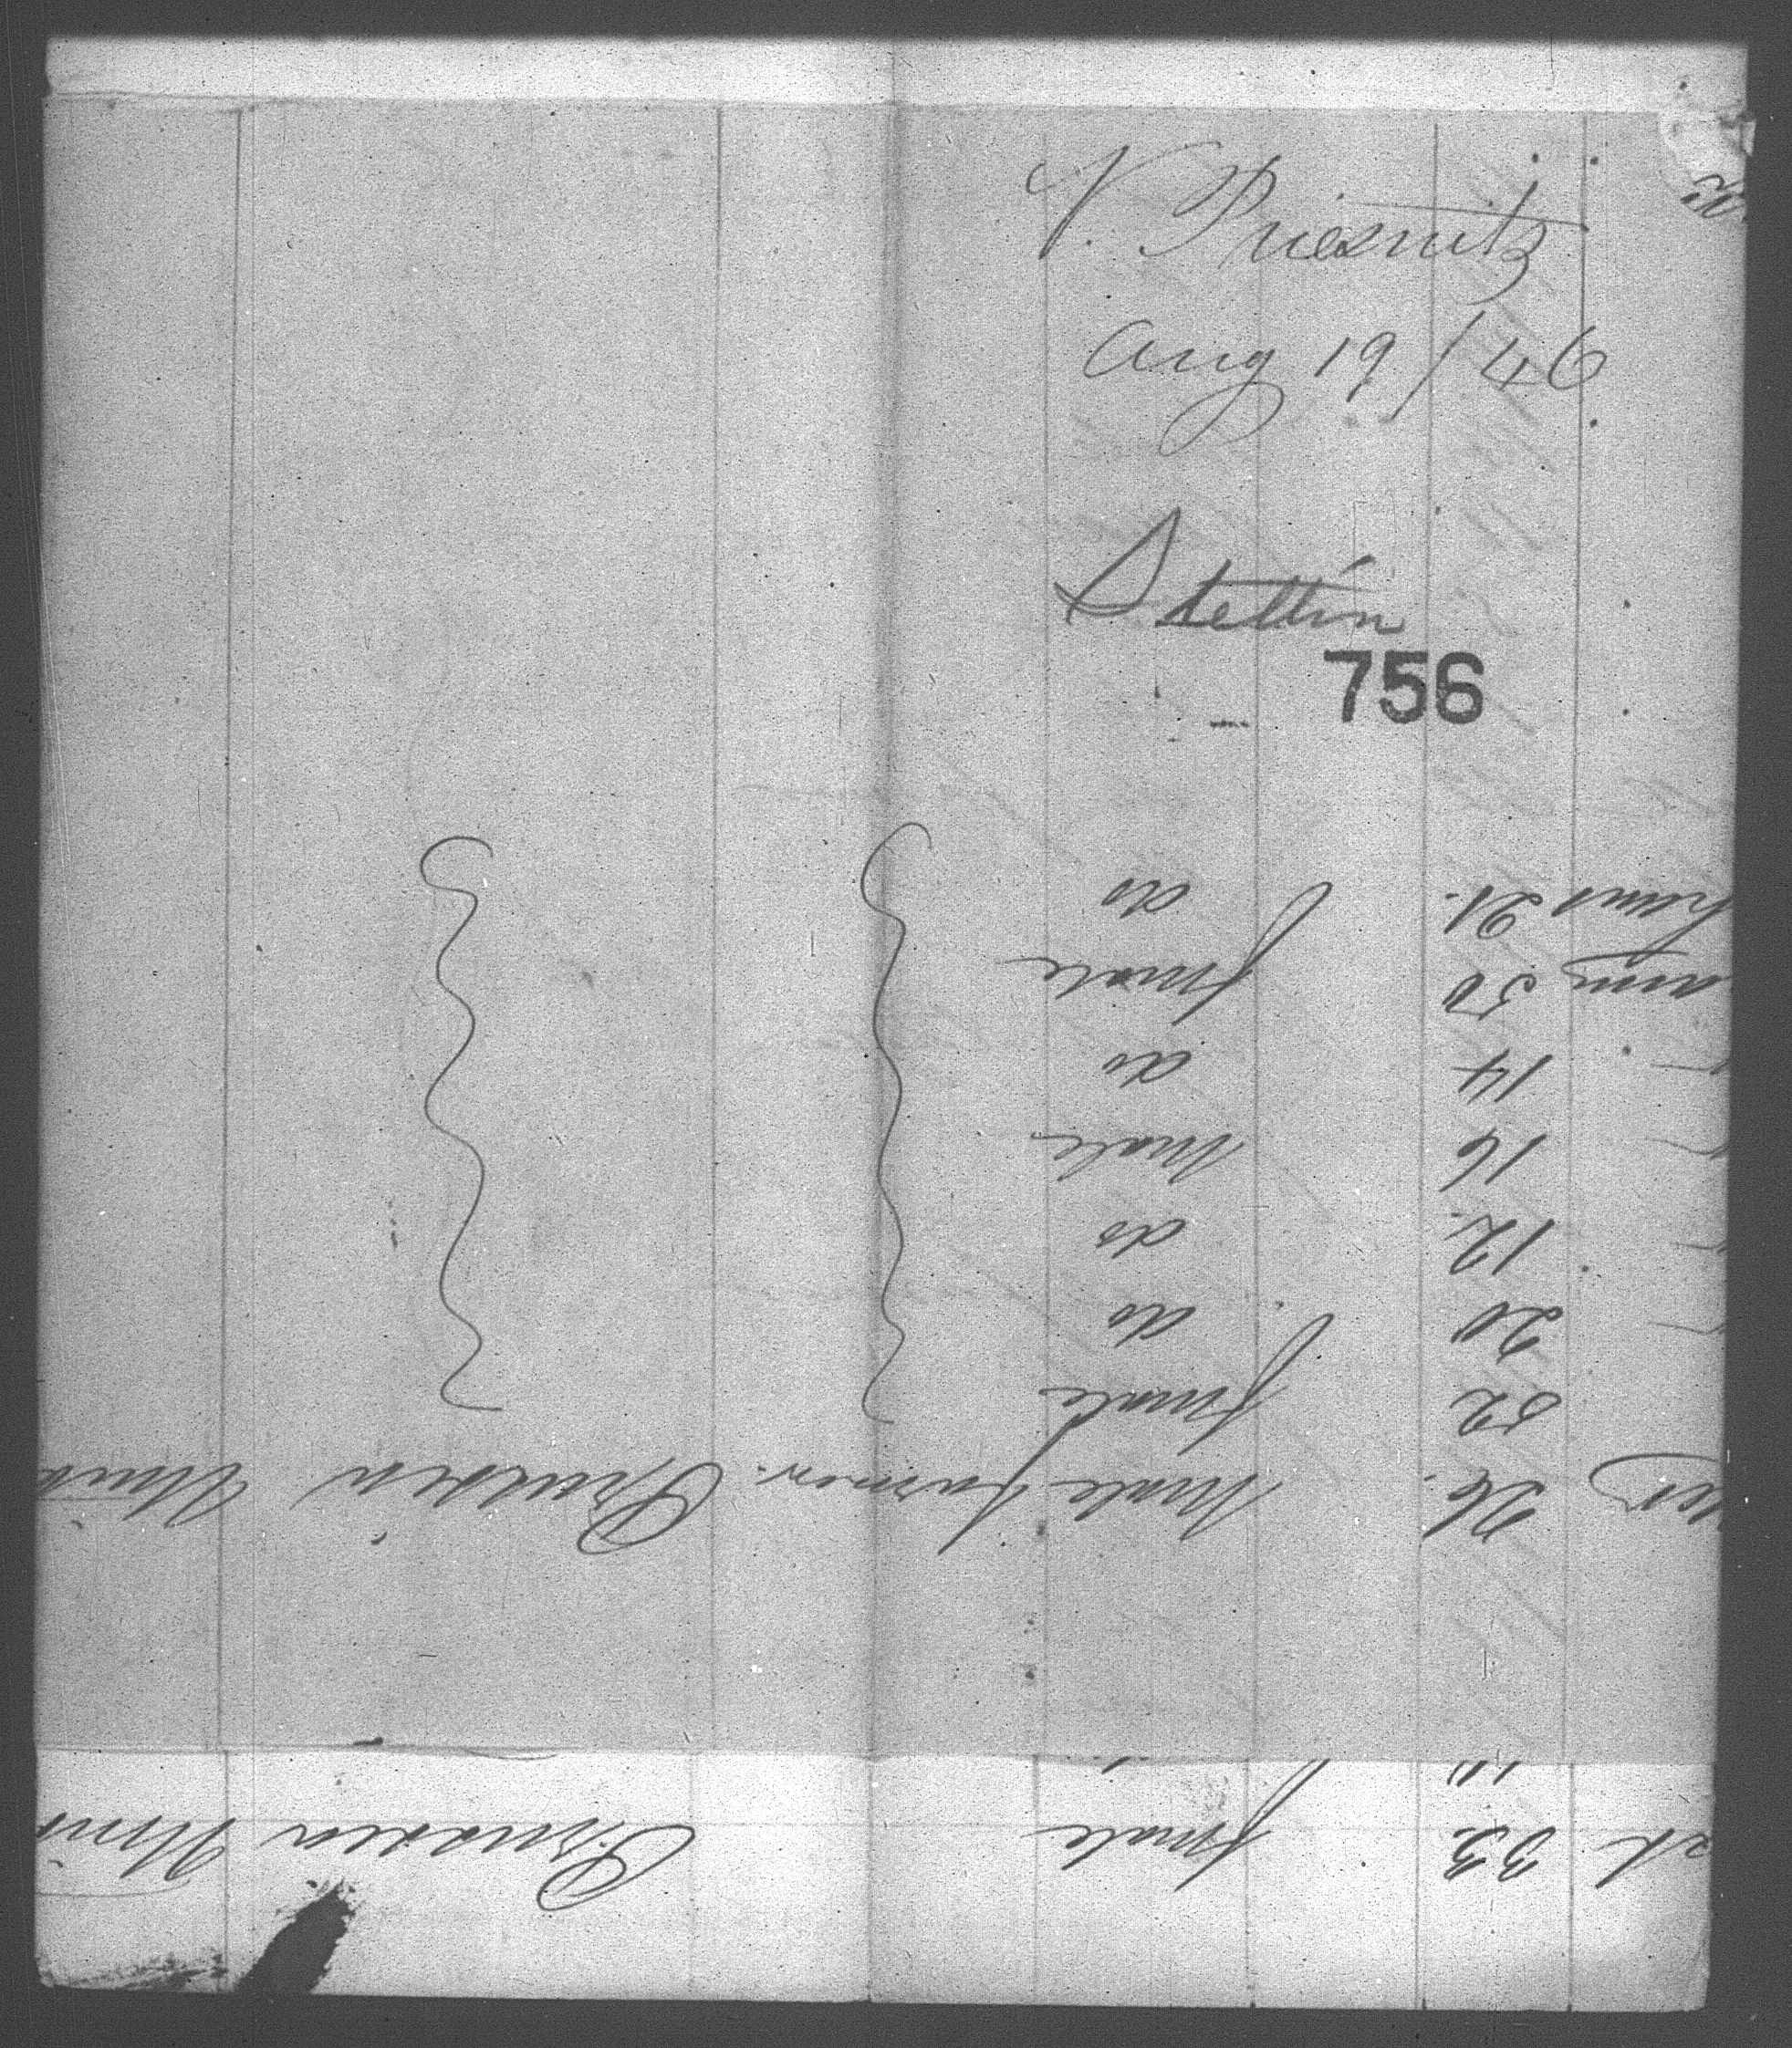 V. Priesnitz
Aug 19/46
Stettin
756
33. female Prussia
26. Male farmer. Prussia
52 female
20 do
12. do
16 Male
14 do
50 female
21. do